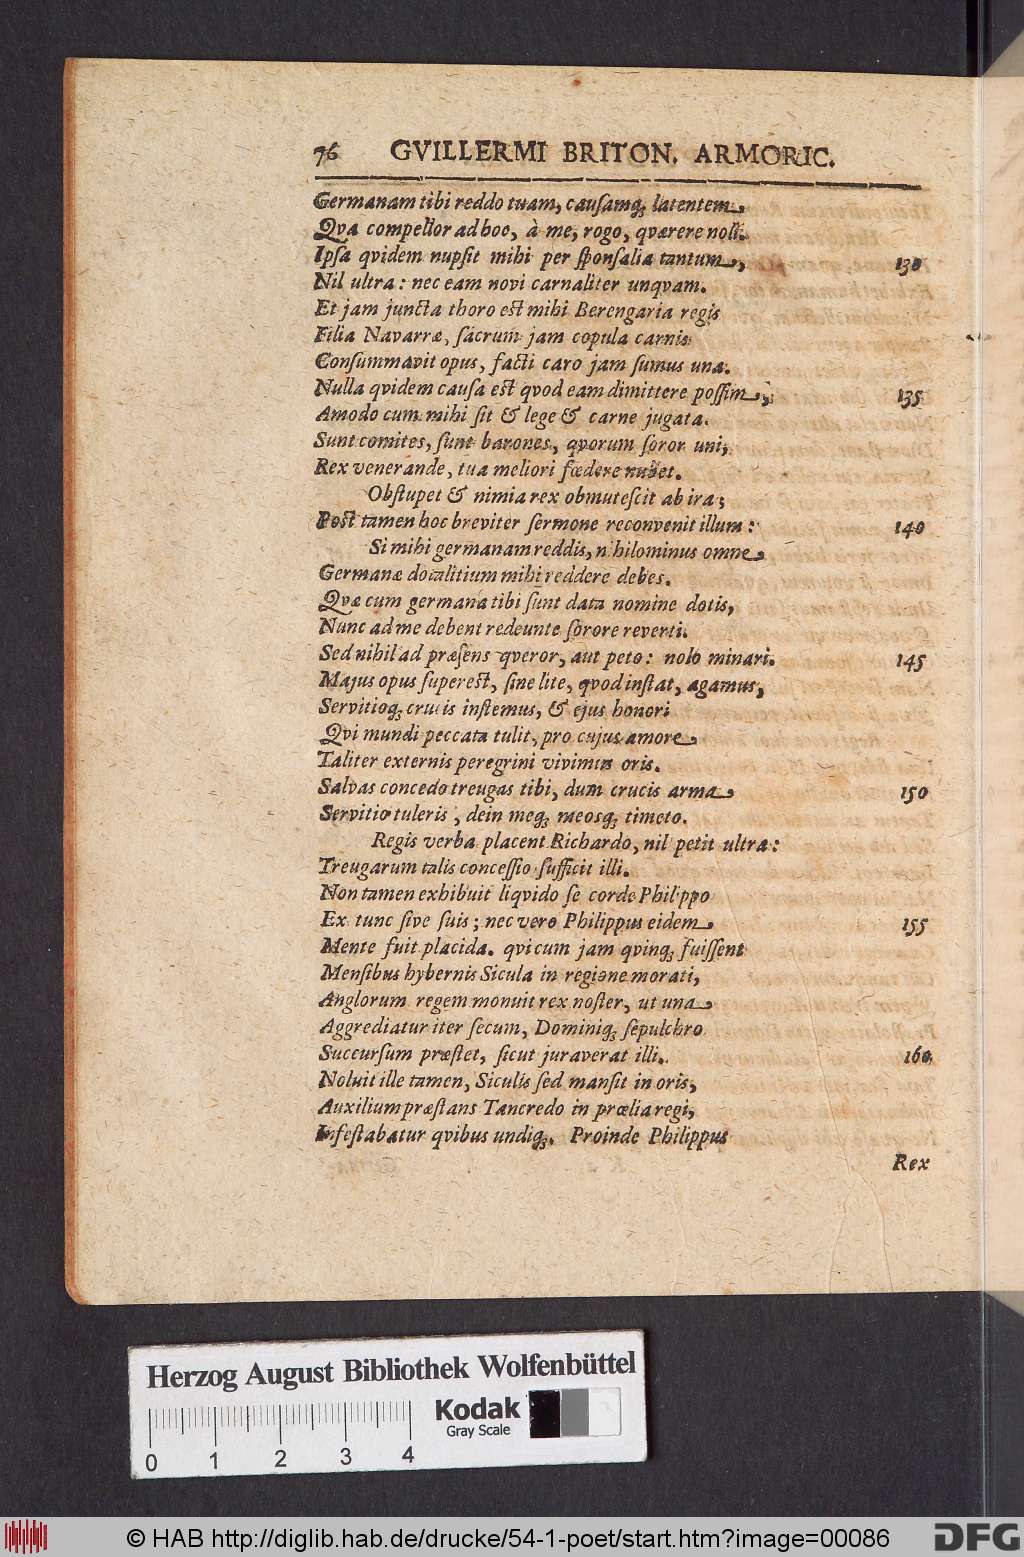 76 GVILLERMI BRITON. ARMORIC.
Germanam tibi reddo tuam, causamq; latentem
Qva compellor ad hoc, à me, rogo, qværere noli.
Ipsa qvidem nupsit mihi per sponsalia tantum, 130
Nil ultra: nec eam novi carnaliter unqvam.
Et jam juncta thoro est mihi Berengaria regis
Filia Navarræ, sacrum jam copula carnis
Consummavit opus, facti caro jam sumus una.
Nulla qvidem causa est qvod eam dimittere possim, 135
Amodo cum mihi sit & lege & carne jugata.
Sunt comites, sunt barones, qvorum soror uni,
Rex venerande, tua meliori fœdere nubet.
Obstupet & nimia rex obmutescit ab ira;
Post tamen hoc breviter sermone reconvenit illum: 140
Si mihi germanam reddis, nihilominus omne
Germanæ dotalitium mihi reddere debes.
Qvæ cum germana tibi sunt data nomine dotis,
Nunc ad me debent redeunte sorore reverti.
Sed nihil ad præsens qveror, aut peto: nolo minari. 145
Majus opus superest, sine lite, qvod instat, agamus,
Servitioq; crucis instemus, & ejus honori
Qvi mundi peccata tulit, pro cujus amore
Taliter externis peregrini vivimus oris.
Salvas concedo treugas tibi, dum crucis arma 150
Servitio tuleris, dein meq; meosq; timeto.
Regis verba placent Richardo, nil petit ultra:
Treugarum talis concessio sufficit illi.
Non tamen exhibuit liqvido se corde Philippo
Ex tunc sive suis; nec vero Philippus eidem 155
Mente fuit placida. qvi cum jam qvinq; fuissent
Mensibus hybernis Sicula in regione morati,
Anglorum regem monuit rex noster, ut una
Aggrediatur iter secum, Dominiq; sepulchro
Succursum præstet, sicut juraverat illi. 160
Noluit ille tamen, Siculis sed mansit in oris,
Auxilium præstans Tancredo in prœlia regi,
Infestabatur qvibus undiq;. Proinde Philippus
Rex
Herzog August Bibliothek Wolfenbüttel
Kodak
Gray Scale
0 1 2 3 4
© HAB http://diglib.hab.de/drucke/54-1-poet/start.htm?image=00086
DFG